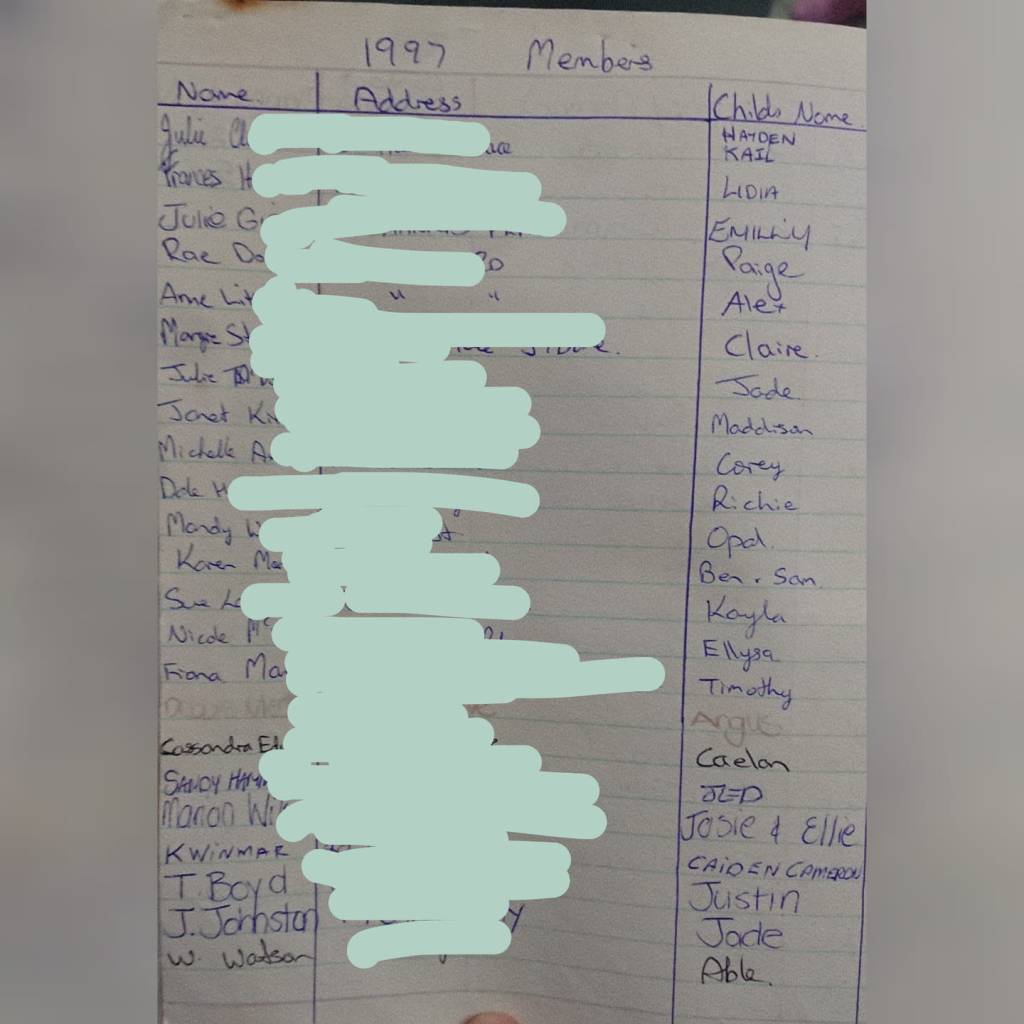 1997 Members
Name Address Childs Name
Julie HAYDEN
KAIL
Frances H LIDIA
Julie Gi EMILLY
Rae Do Paige
Anne Lit " " Alex
Margie St Claire.
Julie Jade
Janet Ki Maddison
Michelle A Corey
Dale H Richie
Mandy W st Opal.
Karen Ma Ben . Sam
Sue Kayla
Nicole Mc Ellysa
Fiona Ma Timothy
Angus
Cassandra Ed Caelan
SANDY HAM JED
Marion Wi Josie & Ellie
K WINMAR CAIDEN CAMERON
T. Boyd Justin
J. Johnston Jade
W. Watson Able.